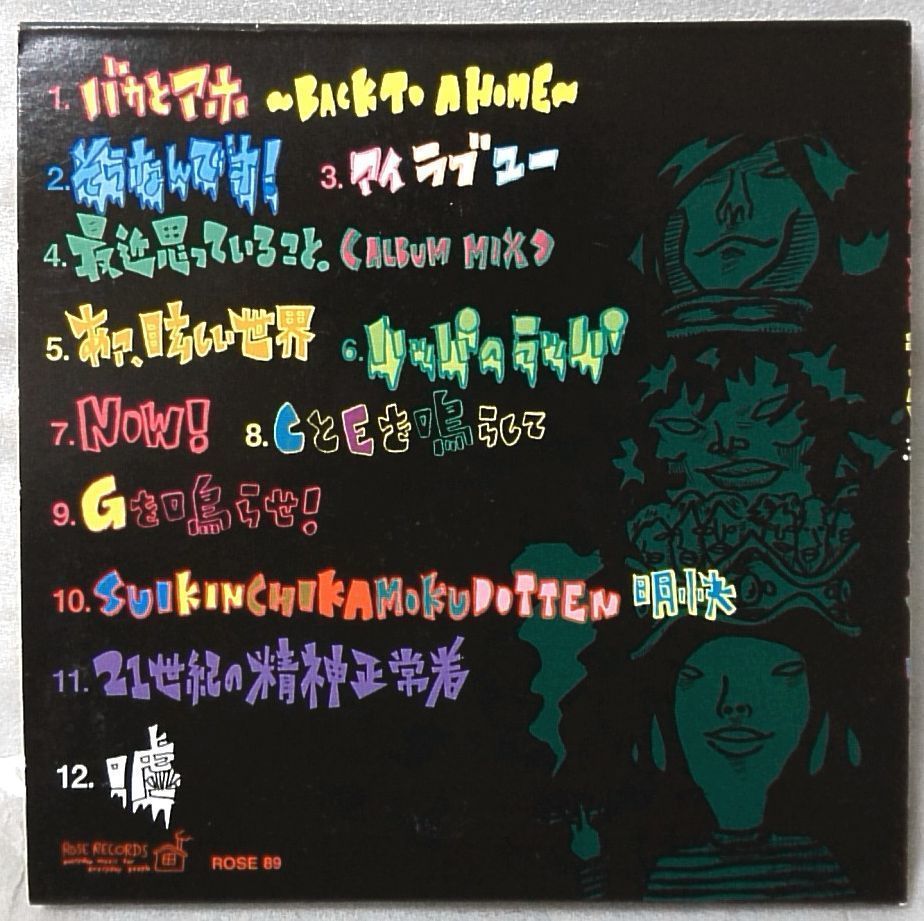 1. バカとアホ ~BACK TO A HOME~
2. そうなんです! 3. アイラブユー
4. 最近思っていること。(ALBUM MIX)
5. あっ、眩しい世界 6. ハッパのラッパ
7. NOW! 8. CとEを鳴らして
9. Gを鳴らせ!
10. SUIKINCHIKAMOKUDOTTEN 明快
11. 21世紀の精神正常者
12. 嘘
ROSE RECORDS
everyday music for
everyday people
ROSE 89